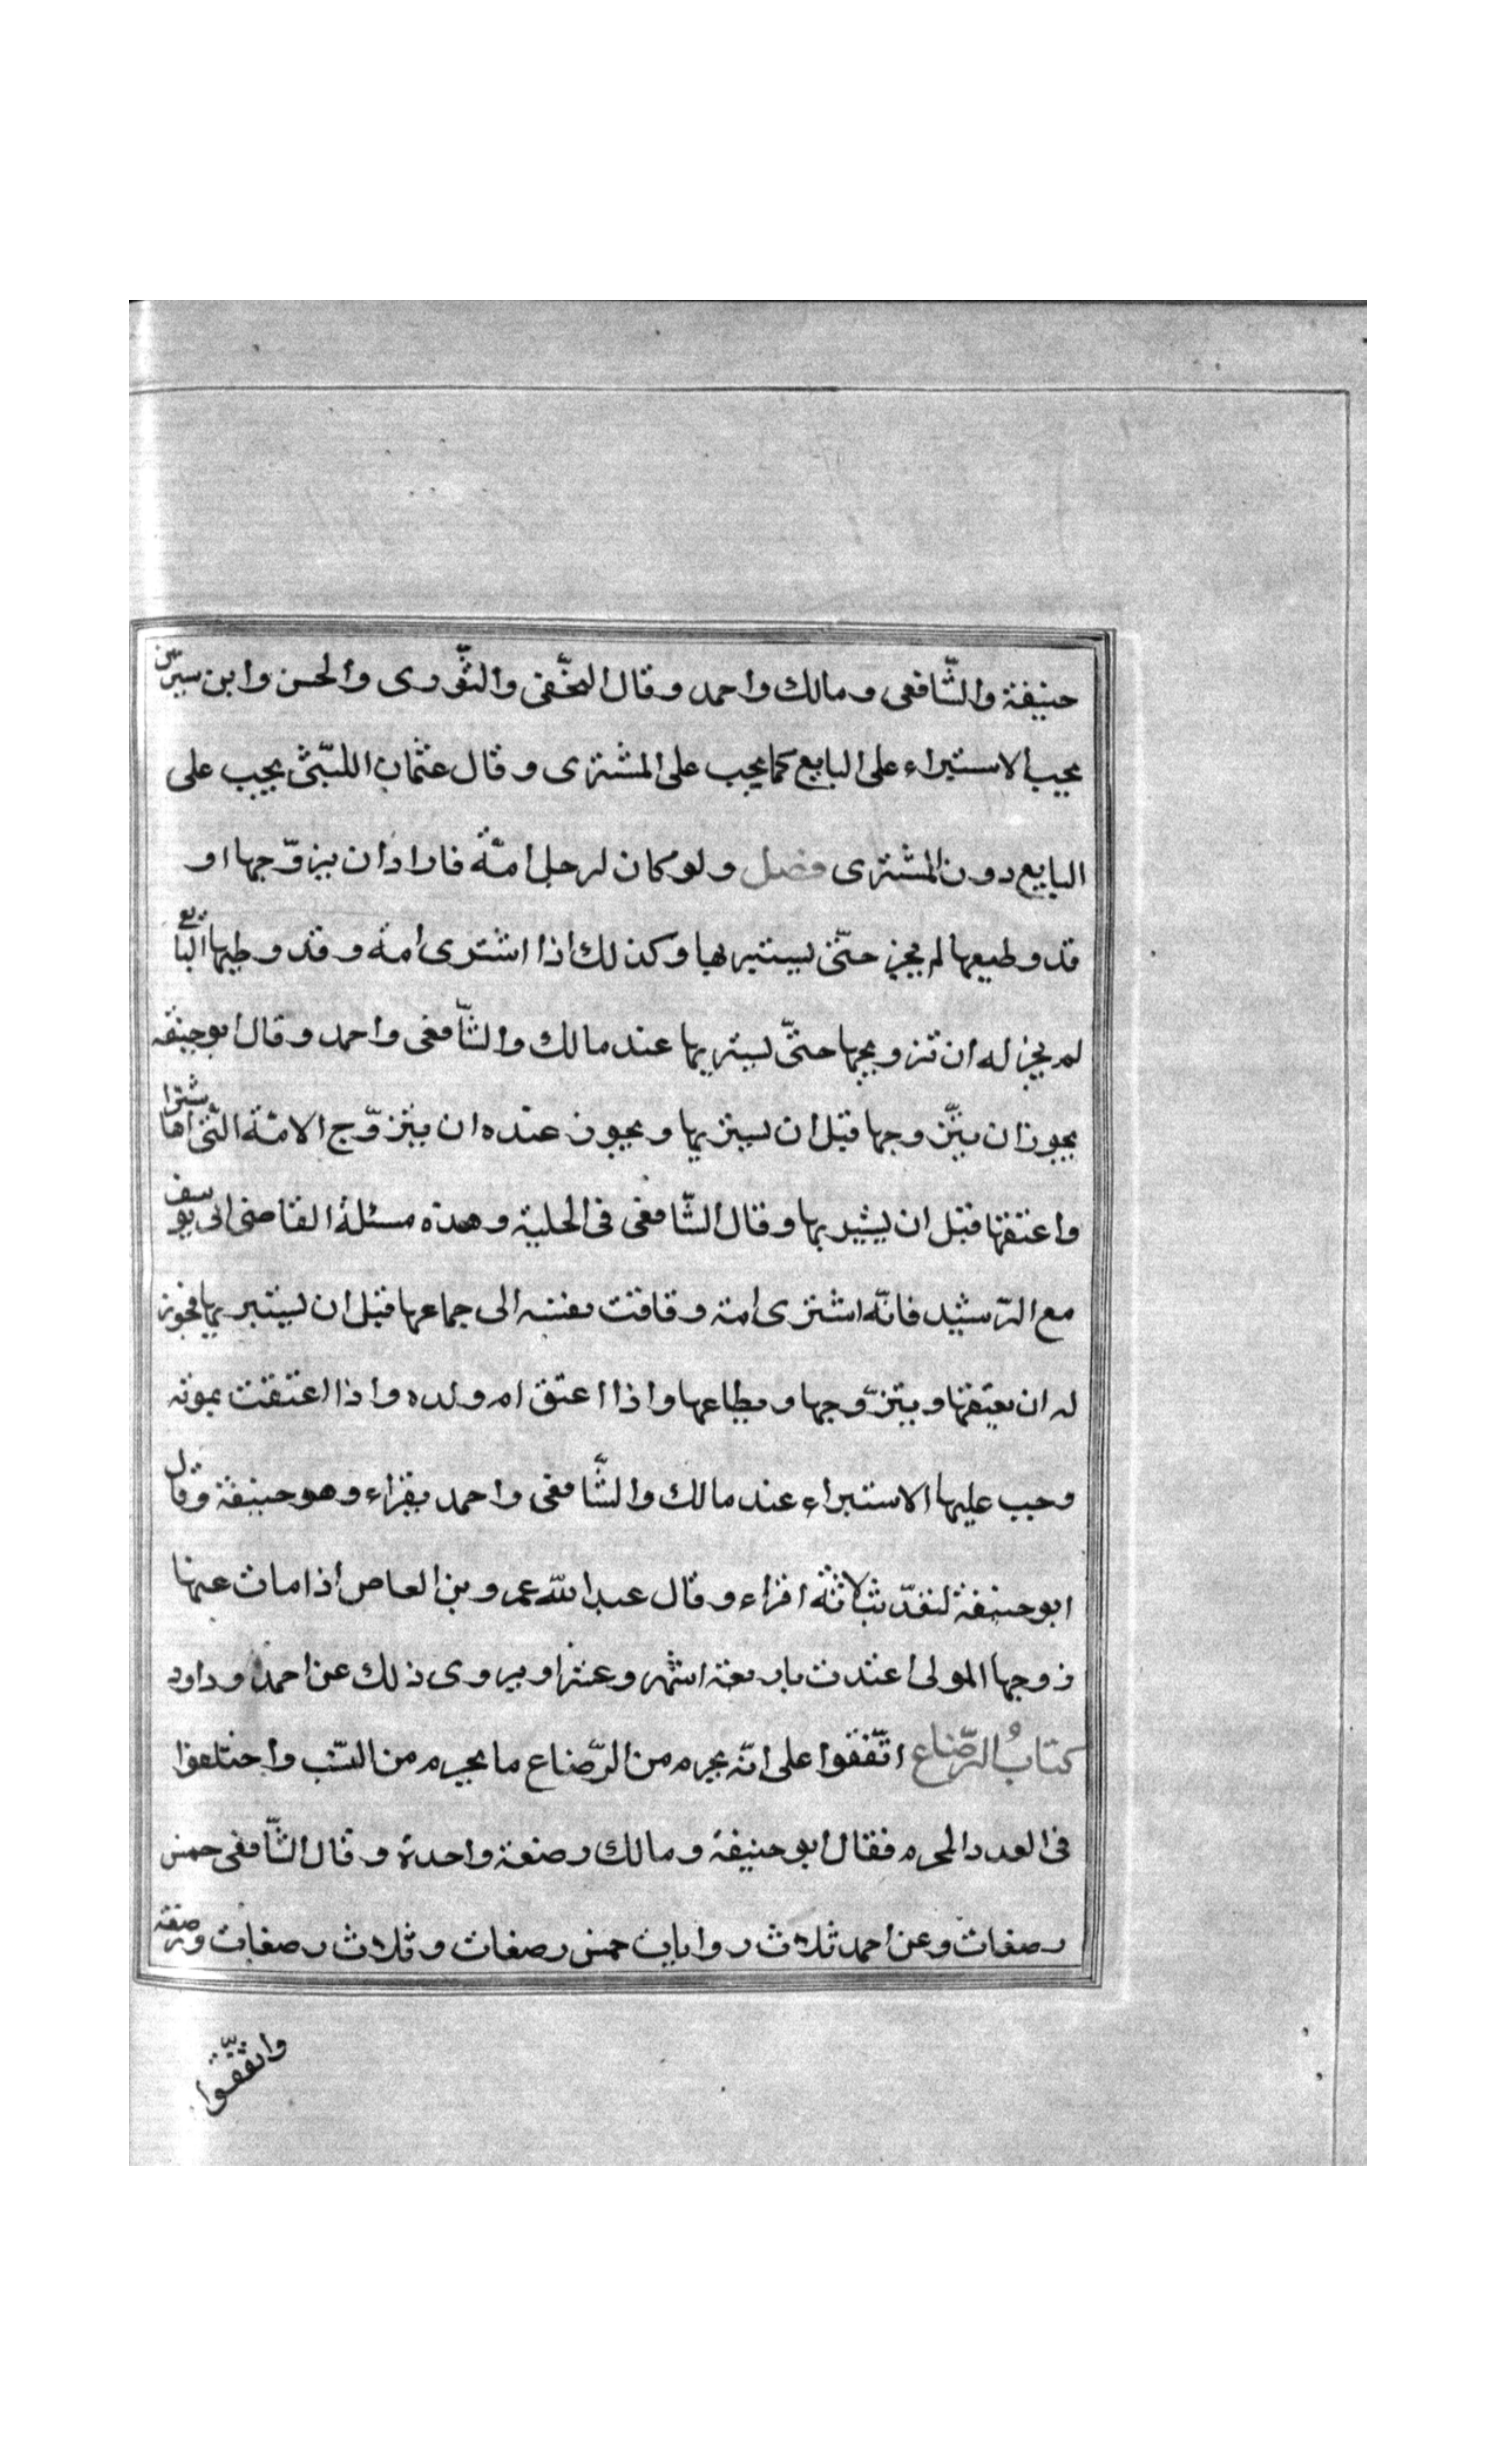 حنيفة والشّافعى ومالك واحمد وقال النخّعى والثّورى والحسن وابن سيرين
يجب الاستبراء على البايع كما يجب على المشترى وقال عثمان الليّثى يجب على
البايع دون المشترى فصل ولو كان لرجل امة فاراد ان يزوّجها او
قد وطيعها لم يجز حتّى يستبر بها وكذلك اذا اشترى امة وقد وطيها البايع
لم يجز له ان تزويجها حتىّ يستبريها عند مالك والشّافعى واحمد وقال ابو حنيفه
يجوز ان يتزّوجها قبل ان يستبريها ويجوز عنده ان يتزوّج الامة التّى اشتراها
واعتقها قبل ان يستبريها وقال الشّافعى فى الحلية وهذه مسئلة القاضى ابى يوسف
مع الرّشيد فانّه اشترى امة وقافت نفسه الى جماعها قبل ان يستبريها فجوز
له ان يعتقها ويتزوّجها ويطاعها واذا اعتق ام ولده واذا اعتقت بموته
وجب عليها الاستبراء عند مالك والشّافعى واحمد بقراء وهو حنيفة وقال
ابو حنيفة لتقدّ بثلاثة اقراء وقال عبد الله عمرو بن العاص اذا مات عنها
زوجها المولى اعتدت باربعة اشهر وعشرا ويروى ذلك عن احمد وداود
كتابُ الرّضاع اتّفقوا على انّه يحرم من الرّضاع ما يحرم من النسّب واختلفوا
فى العدد المحرم فقال ابو حنيفة ومالك رضعة واحدة وقال الشّافعى خمس
رضعات وعن احمد ثلاث روايات خمس رضعات وثلاث رضعات ورضعة
واتّفقوا